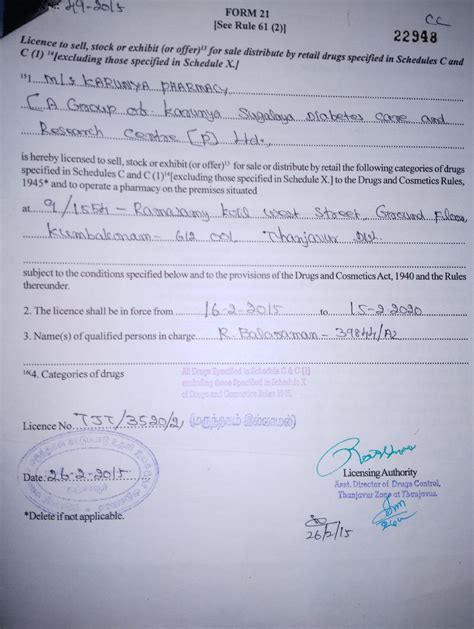 49-2015
FORM 21
[See Rule 61 (2)]
CC
22948
Licence to sell, stock or exhibit (or offer)¹³ for sale distribute by retail drugs specified in Schedules C and
C (1) ¹⁴[excluding those specified in Schedule X.]
¹⁵1. M/s KARUNYA PHARMACY
(A Group of Karunya Sugalaya Diabetes care and
Research Centre (P) Ltd.,
is hereby licensed to sell, stock or exhibit (or offer)¹³ for sale or distribute by retail the following categories of drugs
specified in Schedules C and C (1)¹⁴[excluding those specified in Schedule X.] to the Drugs and Cosmetics Rules,
1945* and to operate a pharmacy on the premises situated
at 9/155A - Ramasamy koil west Street, Ground Floor,
Kumbakonam - 612 001 Thanjavur Dt.
subject to the conditions specified below and to the provisions of the Drugs and Cosmetics Act, 1940 and the Rules
thereunder.
2. The licence shall be in force from 16-2-2015 to 15-2-2020
3. Name(s) of qualified persons in charge R. Balaraman - 39844/A2
¹⁶4. Categories of drugs
All Drugs Specified in Schedule C & C [1]
excluding those Specified in Schedule X
of Drugs and Cosmetics Rules 1945.
Licence No. TJT/3520/21 (மருந்தகம் இல்லாமல்)
Date 26-2-2015
Licensing Authority
Asst. Director of Drugs Control,
Thanjavur Zone at Thanjavur.
*Delete if not applicable.
26/2/15